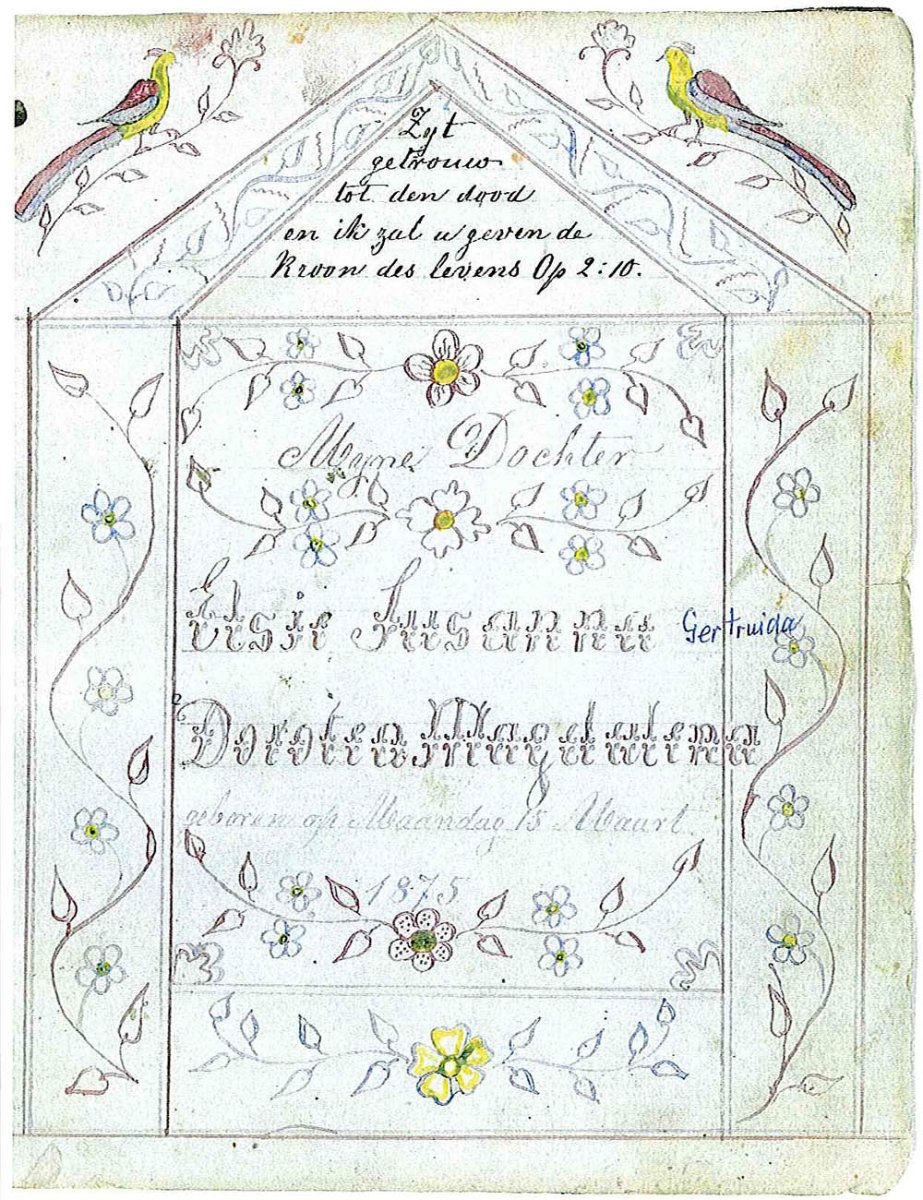 Zyt
getrouw
tot den dood
en ik zal u geven de
Kroon des levens Op 2:10.
Myne Dochter
Elsie Susanna Gertruida
Dorotea Magdalena
geboren op Maandag 15 Maart
1875